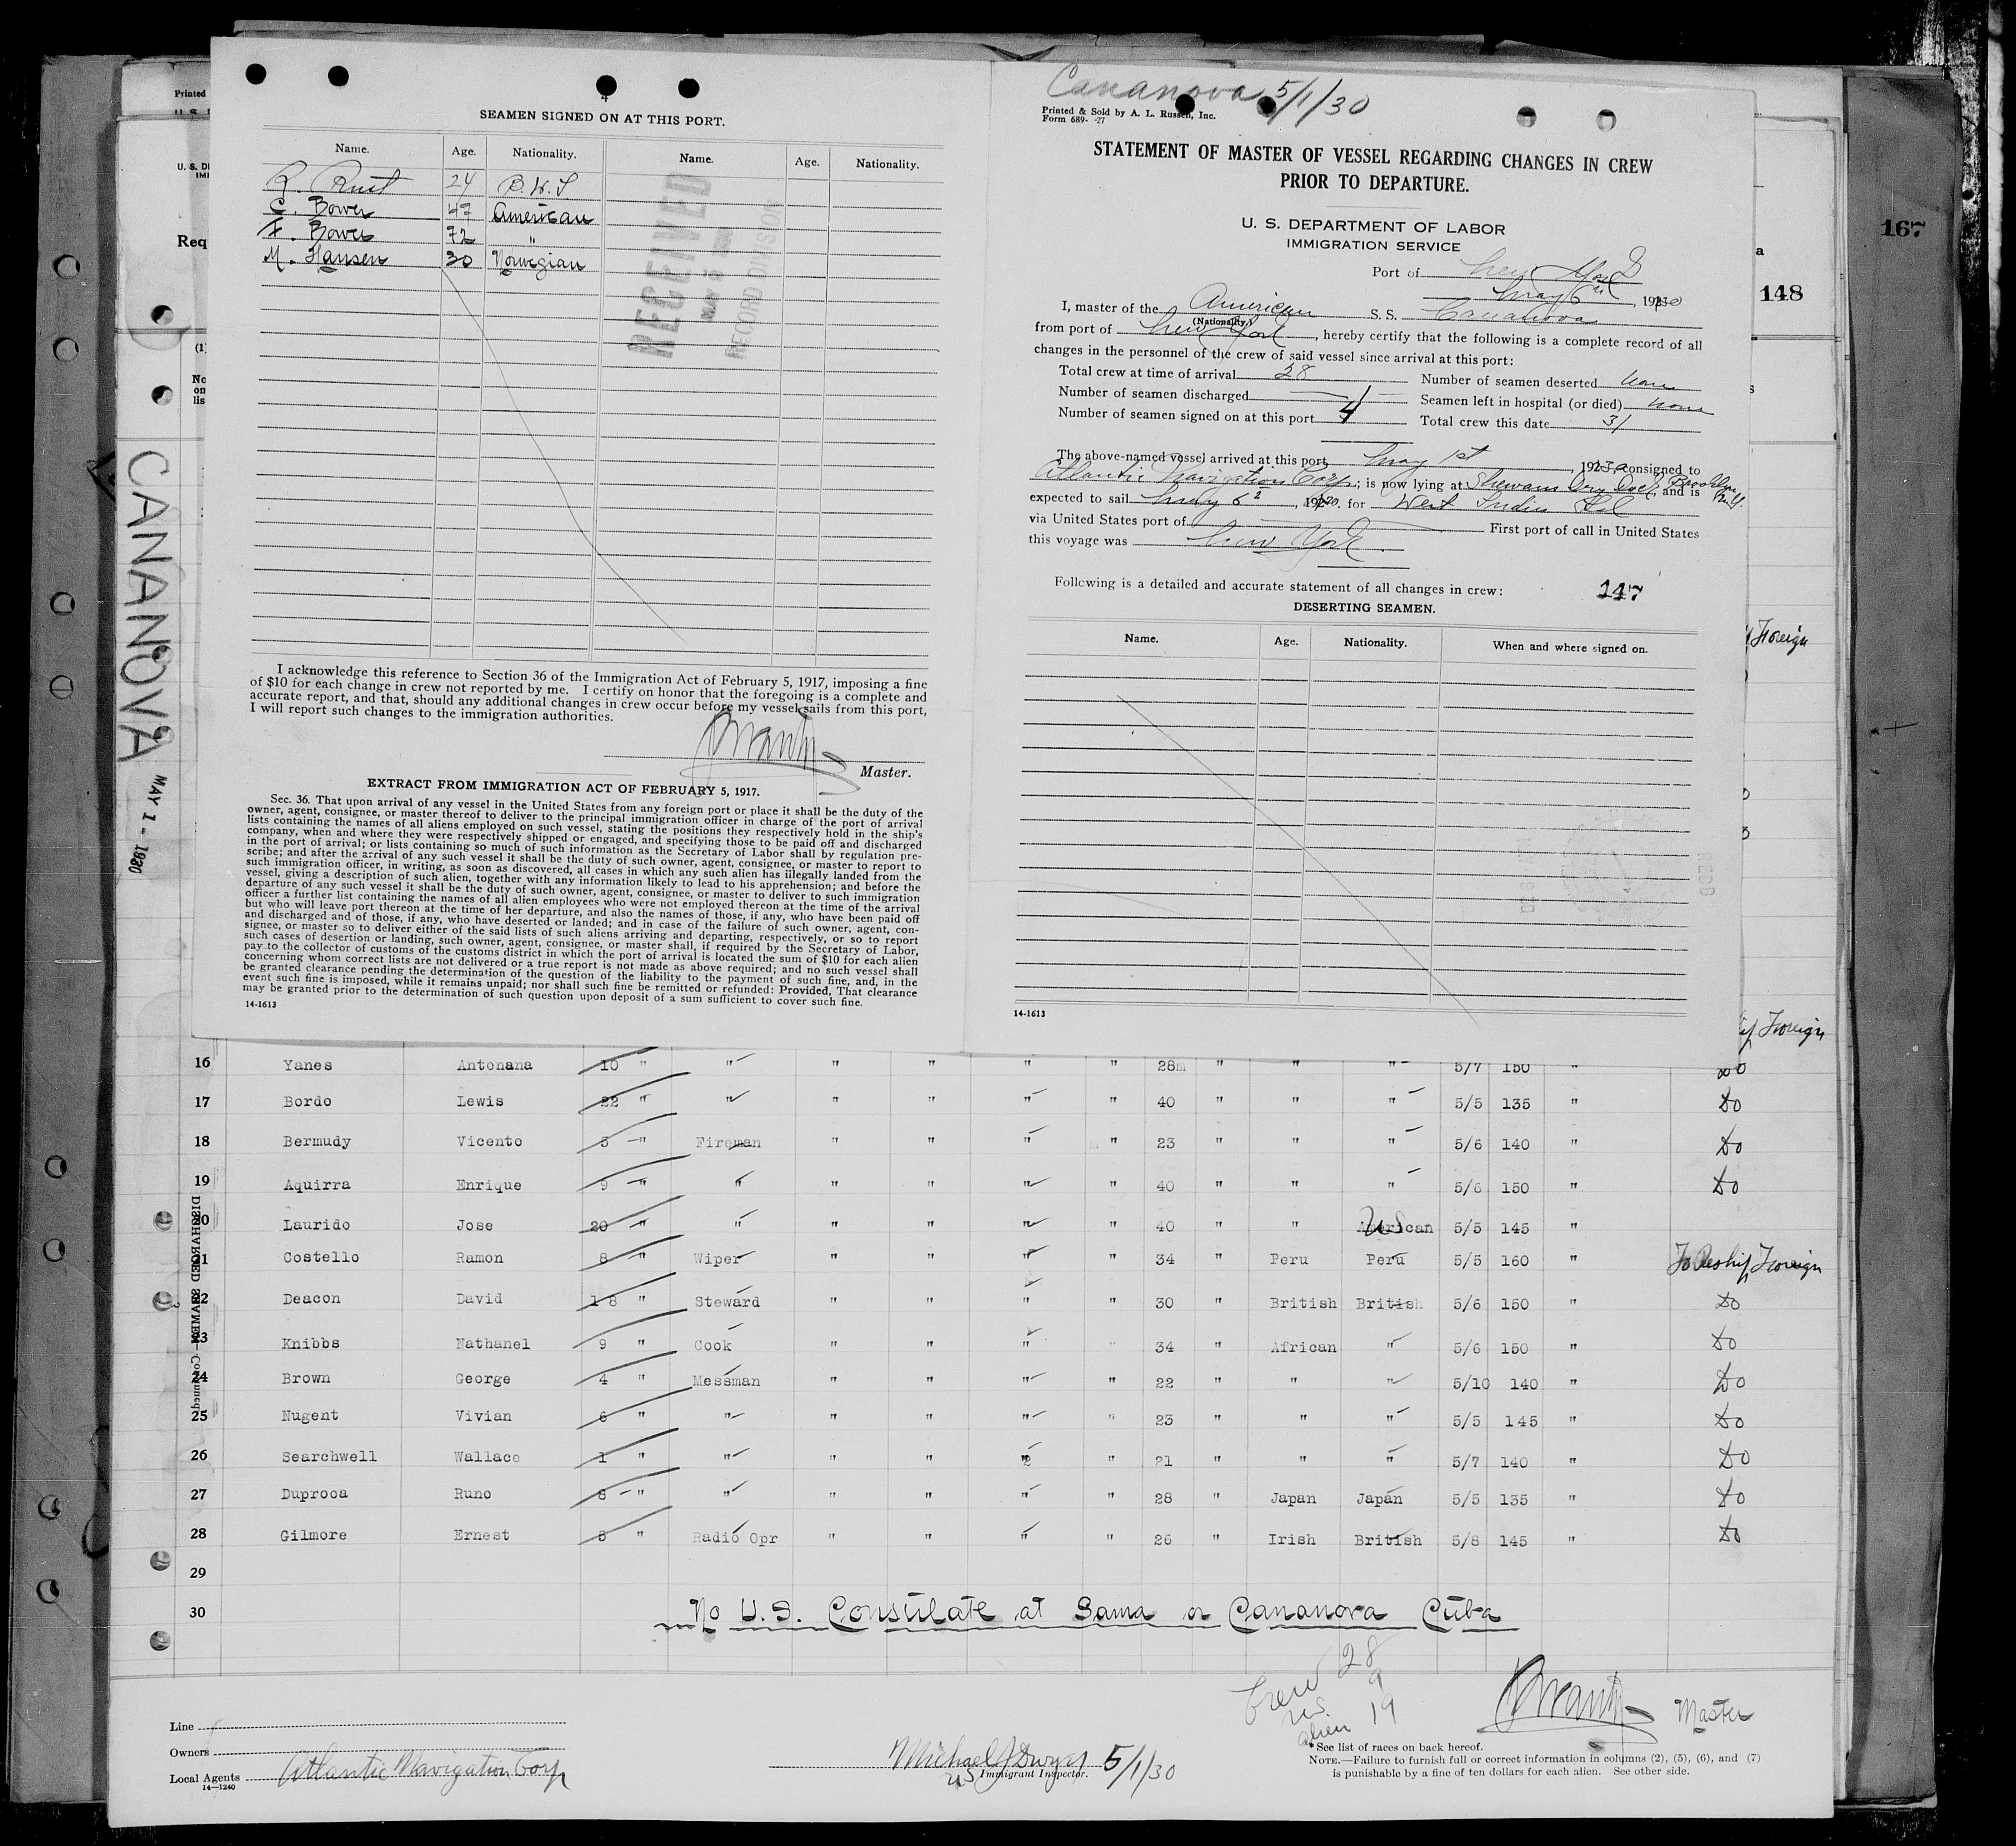 4
SEAMEN SIGNED ON AT THIS PORT.
Name. Age. Nationality. Name. Age. Nationality.
R. Rust 24 B.W.I
C. Bower 47 American
F. Bower 72 "
M. Hansen 30 Norwegian
RECEIVED
RECORD DIVISION
I acknowledge this reference to Section 36 of the Immigration Act of February 5, 1917, imposing a fine
of $10 for each change in crew not reported by me. I certify on honor that the foregoing is a complete and
accurate report, and that, should any additional changes in crew occur before my vessel sails from this port,
I will report such changes to the immigration authorities.
Master.
EXTRACT FROM IMMIGRATION ACT OF FEBRUARY 5, 1917.
Sec. 36. That upon arrival of any vessel in the United States from any foreign port or place it shall be the duty of the
owner, agent, consignee, or master thereof to deliver to the principal immigration officer in charge of the port of arrival
lists containing the names of all aliens employed on such vessel, stating the positions they respectively hold in the ship's
company, when and where they were respectively shipped or engaged, and specifying those to be paid off and discharged
in the port of arrival; or lists containing so much of such information as the Secretary of Labor shall by regulation pre-
scribe; and after the arrival of any such vessel it shall be the duty of such owner, agent, consignee, or master to report to
such immigration officer, in writing, as soon as discovered, all cases in which any such alien has illegally landed from the
vessel, giving a description of such alien, together with any information likely to lead to his apprehension; and before the
departure of any such vessel it shall be the duty of such owner, agent, consignee, or master to deliver to such immigration
officer a further list containing the names of all alien employees who were not employed thereon at the time of the arrival
but who will leave port thereon at the time of her departure, and also the names of those, if any, who have been paid off
and discharged and of those, if any, who have deserted or landed; and in case of the failure of such owner, agent, con-
signee, or master so to deliver either of the said lists of such aliens arriving and departing, respectively, or so to report
such cases of desertion or landing, such owner, agent, consignee, or master shall, if required by the Secretary of Labor,
pay to the collector of customs of the customs district in which the port of arrival is located the sum of $10 for each alien
concerning whom correct lists are not delivered or a true report is not made as above required; and no such vessel shall
be granted clearance pending the determination of the question of the liability to the payment of such fine, and, in the
event such fine is imposed, while it remains unpaid; nor shall such fine be remitted or refunded: Provided, That clearance
may be granted prior to the determination of such question upon deposit of a sum sufficient to cover such fine.
14-1613
Cananova 5/1/30
Printed & Sold by A. L. Russell, Inc.
Form 689- -27
STATEMENT OF MASTER OF VESSEL REGARDING CHANGES IN CREW
PRIOR TO DEPARTURE.
U. S. DEPARTMENT OF LABOR
IMMIGRATION SERVICE
Port of New York
May 6th, 1930
I, master of the American S. S. Cananova
(Nationality)
from port of New York, hereby certify that the following is a complete record of all
changes in the personnel of the crew of said vessel since arrival at this port:
Total crew at time of arrival 28 Number of seamen deserted none
Number of seamen discharged 1 Seamen left in hospital (or died) none
Number of seamen signed on at this port 4 Total crew this date 31
The above-named vessel arrived at this port May 1st, 1930, consigned to
Atlantic Navigation Corp; is now lying at Shewans Dry Dock, Brooklyn, and is
expected to sail May 6, 1930. for West Indies
via United States port of First port of call in United States
this voyage was New York.
Following is a detailed and accurate statement of all changes in crew: 147
DESERTING SEAMEN.
Name. Age. Nationality. When and where signed on.
14-1613
Printed
Req
CANANOVA
MAY 1 - 1930
167
148
Foreign
Foreign
DISCHARGED SEAMEN—Continued
16 Yanes Antonana 10 " " " " " " 28m " " " 5/7 150 " Do
17 Bordo Lewis 22 " " " " " " 40 " " " 5/5 135 " Do
18 Bermudy Vicento 5 " Fireman " " " " 23 " " " 5/6 140 " Do
19 Aquirra Enrique 9 " " " " " " 40 " " " 5/6 150 " Do
20 Laurido Jose 20 " " " " " " 40 " " American US 5/5 145 "
21 Costello Ramon 8 " Wiper " " " " 34 " Peru Peru 5/5 160 " To Reship Foreign
22 Deacon David 18 " Steward " " " " 30 " British British 5/6 150 " Do
23 Knibbs Nathanel 9 " Cook " " " " 34 " African " 5/6 150 " Do
24 Brown George 4 " Messman " " " " 22 " " " 5/10 140 " Do
25 Nugent Vivian 6 " " " " " " 23 " " " 5/5 145 " Do
26 Searchwell Wallace 1 " " " " " " 21 " " " 5/7 140 " Do
27 Duprooa Runo 8 " " " " " " 28 " Japan Japan 5/5 135 " Do
28 Gilmore Ernest 5 " Radio Opr " " " " 26 " Irish British 5/8 145 " Do
29
30
No U.S. Consulate at Sama or Cananova Cuba
Crew 28
US 9
alien 19
Master
Line
Owners
Local Agents Atlantic Navigation Corp
14—1240
Michael J Dwyer 5/1/30
US Immigrant Inspector.
* See list of races on back hereof.
NOTE.—Failure to furnish full or correct information in columns (2), (5), (6), and (7)
is punishable by a fine of ten dollars for each alien. See other side.